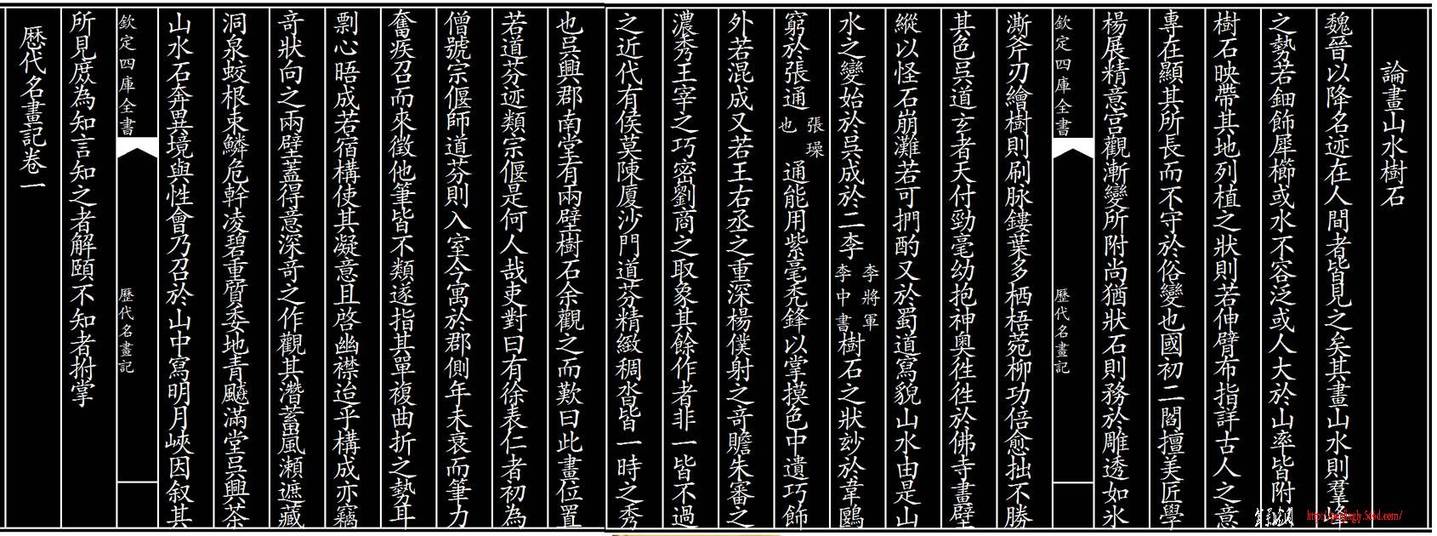 論畫山水樹石
魏晉以降名迹在人間者皆見之矣其畫山水則羣峰
之勢若鈿飾犀櫛或水不容泛或人大於山率皆附
樹石映帶其地列植之狀則若伸臂布指詳古人之意
專在顯其所長而不守於俗變也國初二閻擅美匠學
楊展精意宮觀漸變所附尚猶狀石則務於雕透如氷
欽定四庫全書 歷代名畫記
澌斧刃繪樹則刷脉鏤葉多栖梧菀柳功倍愈拙不勝
其色吴道玄者天付勁毫幼抱神奥徃徃於佛寺畫壁
縱以怪石崩灘若可捫酌又於蜀道寫貌山水由是山
水之變始於吴成於二李李將軍李中書樹石之狀玅於韋鶠
窮於張通張璪也通能用紫毫秃鋒以掌摸色中遺巧飾
外若混成又若王右丞之重深楊僕射之奇贍朱審之
濃秀王宰之巧密劉商之取象其餘作者非一皆不過
之近代有侯莫陳厦沙門道芬精緻稠沓皆一時之秀
也吴興郡南堂有兩壁樹石余觀之而歎曰此畫位置
若道芬迹類宗偃是何人哉吏對曰有徐表仁者初為
僧號宗偃師道芬則入室今寓於郡側年未衰而筆力
奮疾召而來徵他筆皆不類遂指其單複曲折之勢耳
剽心晤成若宿構使其凝意且啓幽襟迨乎構成亦竊
竒狀向之兩壁蓋得意深奇之作觀其潛蓄風瀬遮藏
洞泉蛟根束鱗危幹凌碧重質委地青飈滿堂吴興茶
山水石奔異境與性會乃召於山中寫明月峽因叙其
欽定四庫全書 歷代名畫記
所見庶為知言知之者解頤不知者拊掌
歷代名畫記卷一